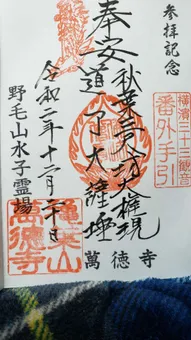 参拝記念
横濱三十三観音
番外手引
奉安
秋葉三尺坊大権現
道了大薩埵
萬徳寺
令和二年十二月二十日
野毛山水子霊場
萬徳寺